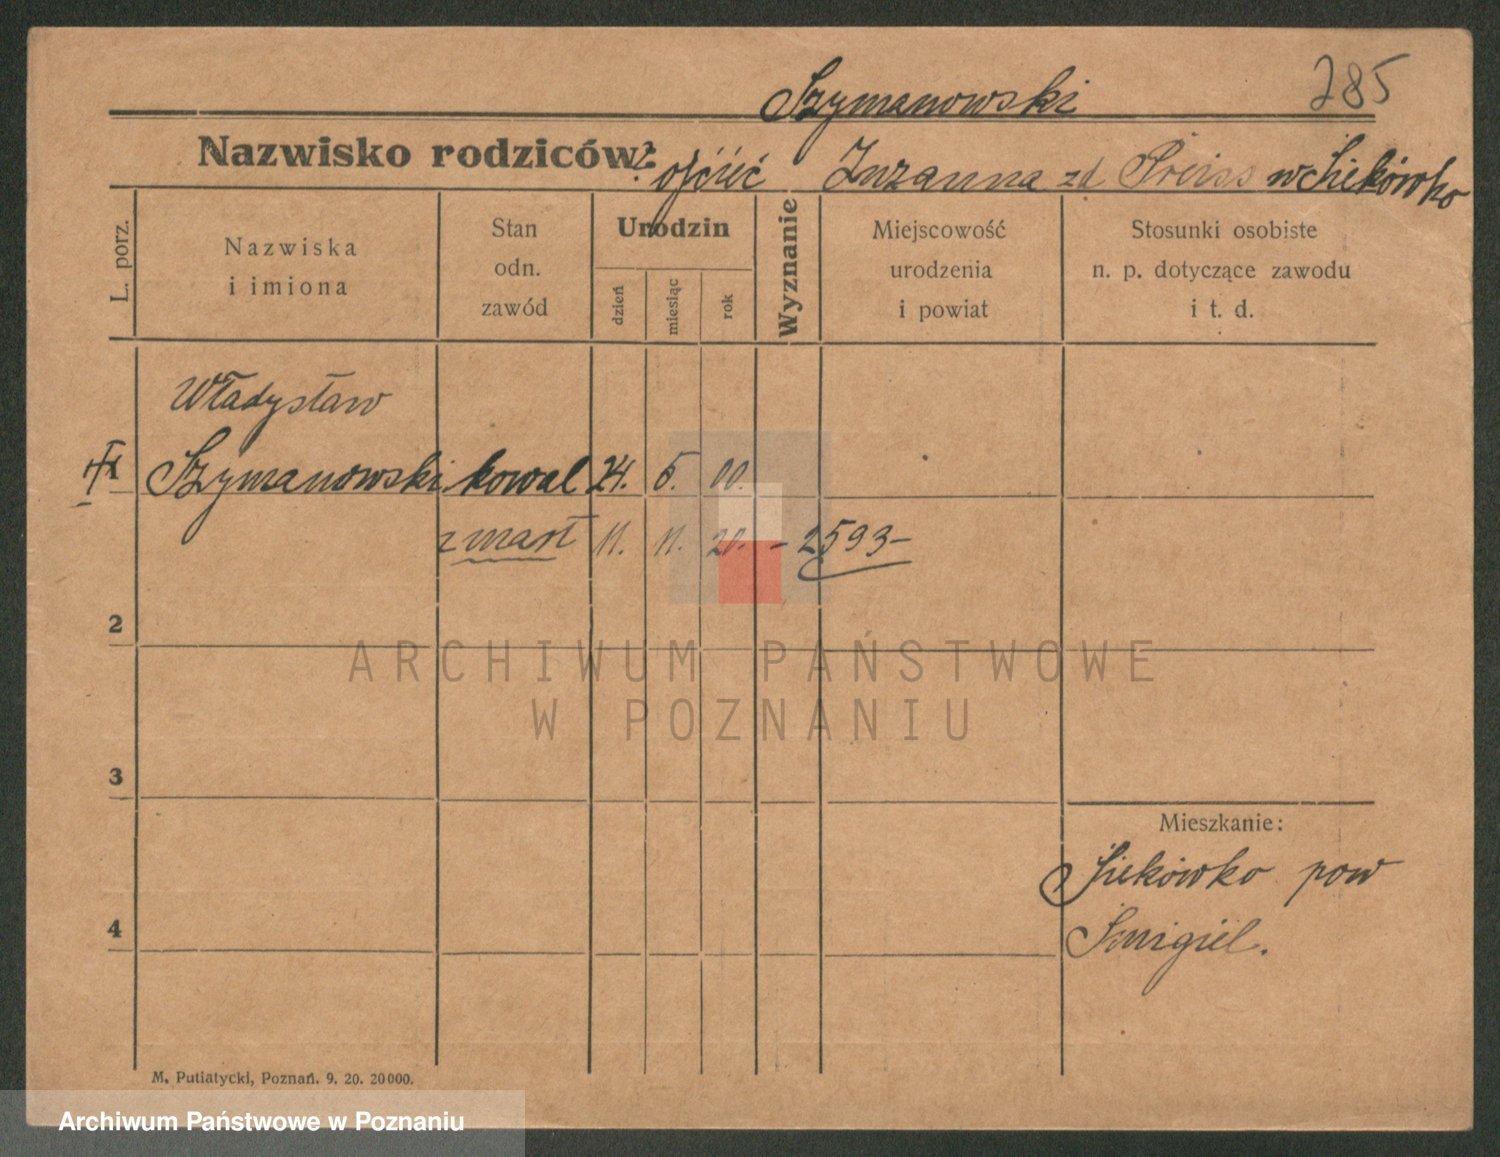 Szymanowski 285
Nazwisko rodziców: ojciec Zuzanna zd Preiss w Siekówko
L. porz.
Nazwiska
i imiona
Stan
odn.
zawód
Urodzin
dzień
miesiąc
rok
Wyznanie
Miejscowość
urodzenia
i powiat
Stosunki osobiste
n. p. dotyczące zawodu
i t. d.
Władysław
1 Szymanowski kowal 24. 5. 00.
zmarł 11. 11. 20. - 2593-
2
ARCHIWUM PAŃSTWOWE
W POZNANIU
3
Mieszkanie:
Siekówko pow
Śmigiel.
4
M. Putiatycki, Poznań. 9. 20. 20000.
Archiwum Państwowe w Poznaniu